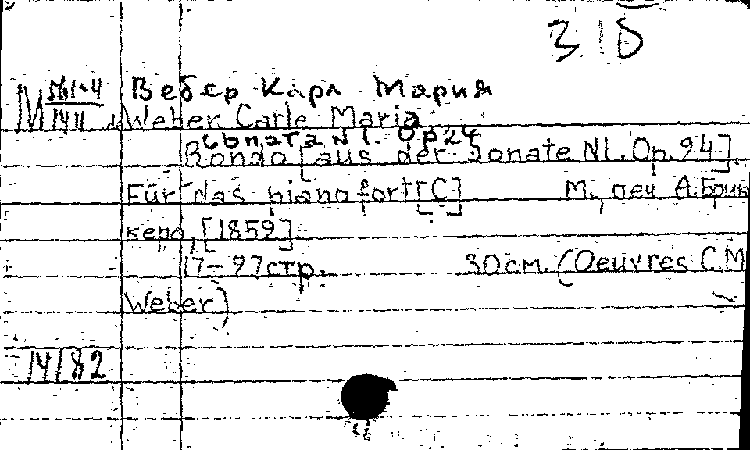 310
М 561-4 Вебер Карл Мария
1411 Weber Carle Maria
Соната N 1. Op 24
Rondo [aus der Sonate N1. Op. 24].
Für das pianofort[C] М., печ А.Брин
кера, [1859]
17-27стр. 30см. (Oeuvres C.M
Weber)
14182